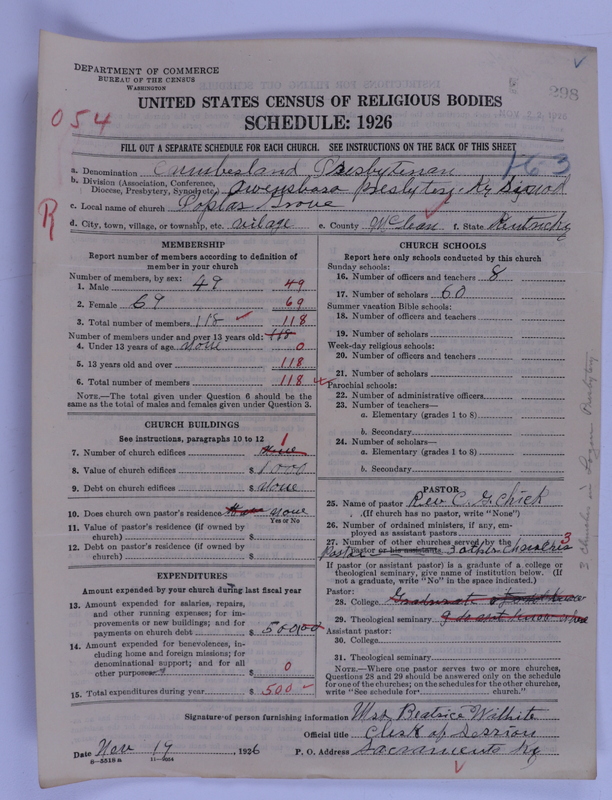 DEPARTMENT OF COMMERCE
BUREAU OF THE CENSUS
WASHINGTON
298
NOV 22 1926
UNITED STATES CENSUS OF RELIGIOUS BODIES
SCHEDULE: 1926
054
FILL OUT A SEPARATE SCHEDULE FOR EACH CHURCH. SEE INSTRUCTIONS ON THE BACK OF THIS SHEET
a. Denomination Cumberland Presbyterian
163
b. Division (Association, Conference, Diocese, Presbytery, Synod, etc.) Owensboro Presbytery. Ky Synod
R
c. Local name of church Poplar Grove
d. City, town, village, or township, etc. village e. County McClean f. State Kentucky
MEMBERSHIP
Report number of members according to definition of
member in your church
Number of members, by sex:
1. Male 49 49
2. Female 69 69
3. Total number of members 118 118
Number of members under and over 13 years old: 118
4. Under 13 years of age none 0
5. 13 years old and over 118
6. Total number of members 118
NOTE.—The total given under Question 6 should be the
same as the total of males and females given under Question 3.
CHURCH BUILDINGS
See instructions, paragraphs 10 to 12
7. Number of church edifices 1
8. Value of church edifices $ 1000
9. Debt on church edifices $ None
10. Does church own pastor's residence none
Yes or No
11. Value of pastor's residence (if owned by
church) $
12. Debt on pastor's residence (if owned by
church) $
EXPENDITURES
Amount expended by your church during last fiscal year
13. Amount expended for salaries, repairs,
and other running expenses; for im-
provements or new buildings; and for
payments on church debt $ 500.00
14. Amount expended for benevolences, in-
cluding home and foreign missions; for
denominational support; and for all
other purposes $ 0
15. Total expenditures during year $ 500
CHURCH SCHOOLS
Report here only schools conducted by this church
Sunday schools:
16. Number of officers and teachers 8
17. Number of scholars 60
Summer vacation Bible schools:
18. Number of officers and teachers
19. Number of scholars
Week-day religious schools:
20. Number of officers and teachers
21. Number of scholars
Parochial schools:
22. Number of administrative officers
23. Number of teachers—
a. Elementary (grades 1 to 8)
b. Secondary
24. Number of scholars—
a. Elementary (grades 1 to 8)
b. Secondary
PASTOR
25. Name of pastor Rev C. G. Chick
(If church has no pastor, write "None")
26. Number of ordained ministers, if any, em-
ployed as assistant pastors
27. Number of other churches served by the 3
pastor or his assistants 3 other churches
If pastor (or assistant pastor) is a graduate of a college or
theological seminary, give name of institution below. (If
not a graduate, write "No" in the space indicated.)
Pastor:
28. College
29. Theological seminary I do not know where
Assistant pastor:
30. College
31. Theological seminary
NOTE.—Where one pastor serves two or more churches,
Questions 28 and 29 should be answered only on the schedule
for one of the churches; on the schedules for the other churches,
write "See schedule for church."
3 churches in Logan Presbytery
Signature of person furnishing information Mrs Beatrice Wilhite
Official title Clerk of Session
Date Nov 19, 1926 P. O. Address Sacramento Ky
8—5518 a 11—9054